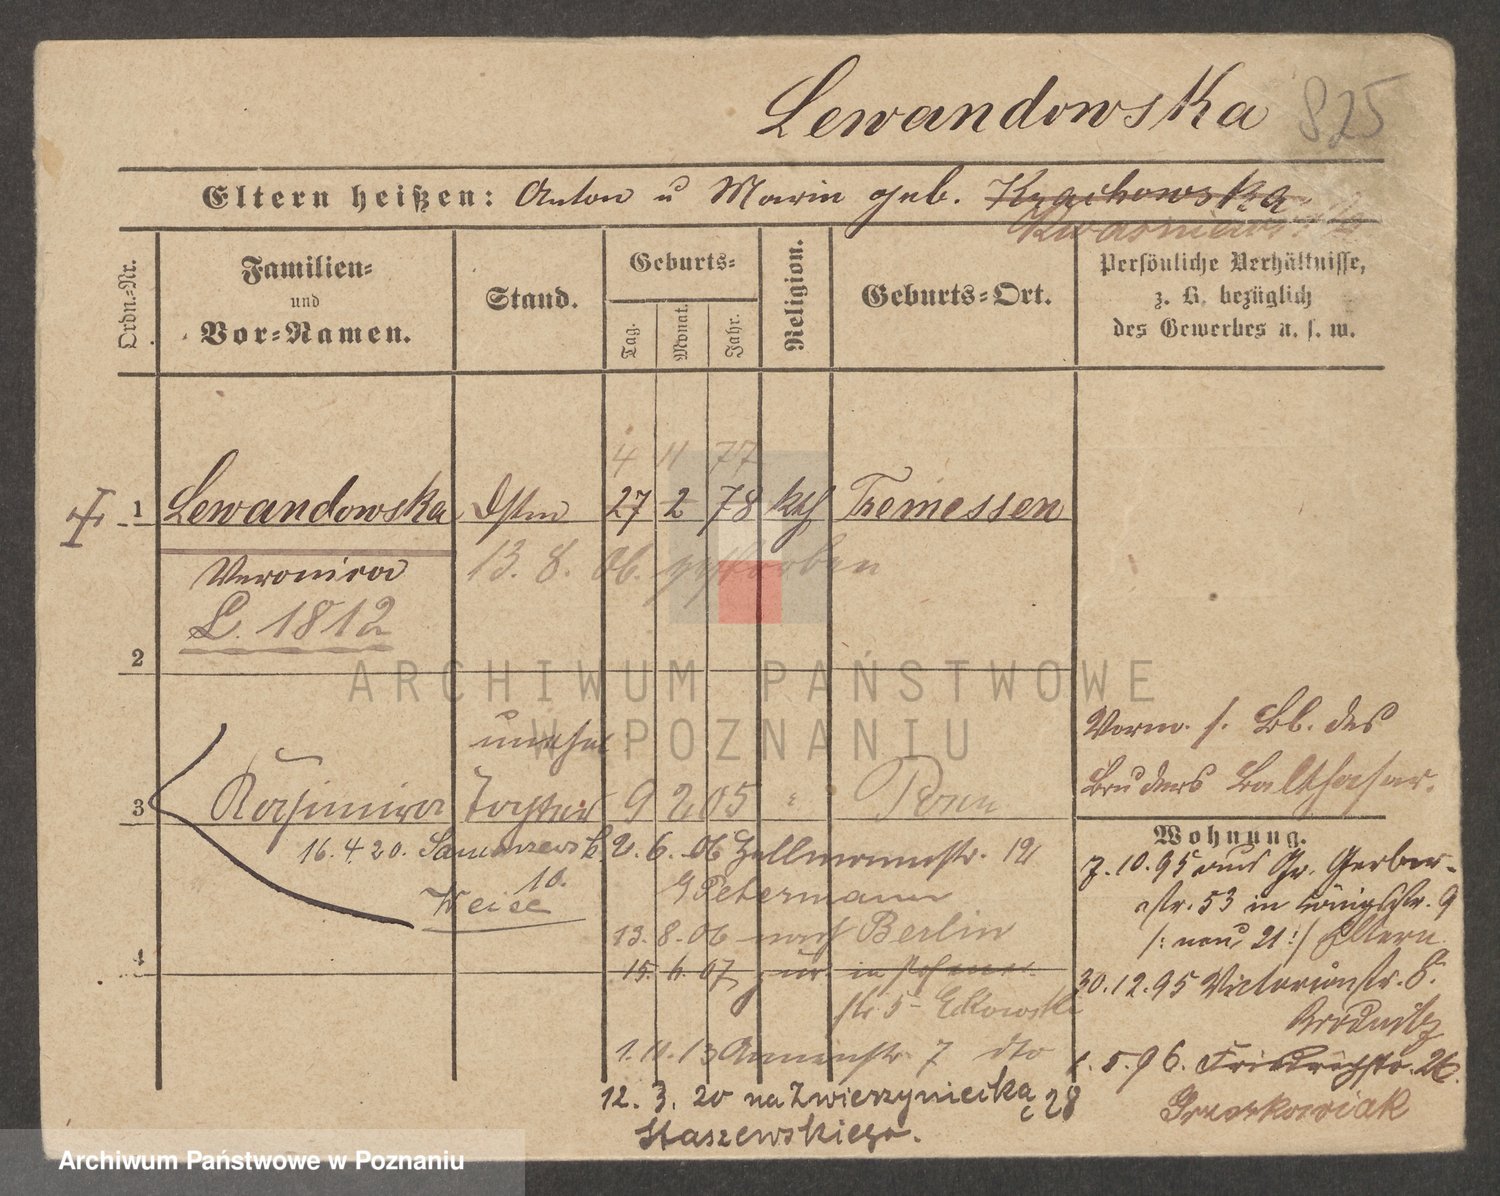 Lewandowska 825
Eltern heißen: Anton u Maria geb. Krachowska
Kwasniewska
Ordn.-Nr.
Familien-
und
Vor-Namen.
Stand.
Geburts-
Tag.
Monat.
Jahr.
Religion.
Geburts-Ort.
Persönliche Verhältnisse,
z. B. bezüglich
des Gewerbes u. s. w.
4 11 77
1 Lewandowska 27 2 78 kth Tremessen
Veronica 13. 8. 06. gestorben
L. 1812
2
unehel
Vorm. s. Bb. des
Bruders Balthasar.
3 Kasimira Tochter 9 2 05 " Posen
Wohnung.
16. 4 20. 2. 6. 06 12
10.
G Petermann
13. 8. 06 nach Berlin
4
15. 6. 07 zur. in
str 5
1. 11. 13 7 dto
12. 3. 20 na Zwierzyniecka 28
Staszewskiego.
7. 10. 95 aus Gr. Gerber-
str. 53 in Königsstr. 9
/: neu 21 :/ Eltern
30. 12. 95 Victoriastr. 8.
1. 5. 96. Friedrichstr. 26.
ARCHIWUM PAŃSTWOWE
W POZNANIU
Archiwum Państwowe w Poznaniu